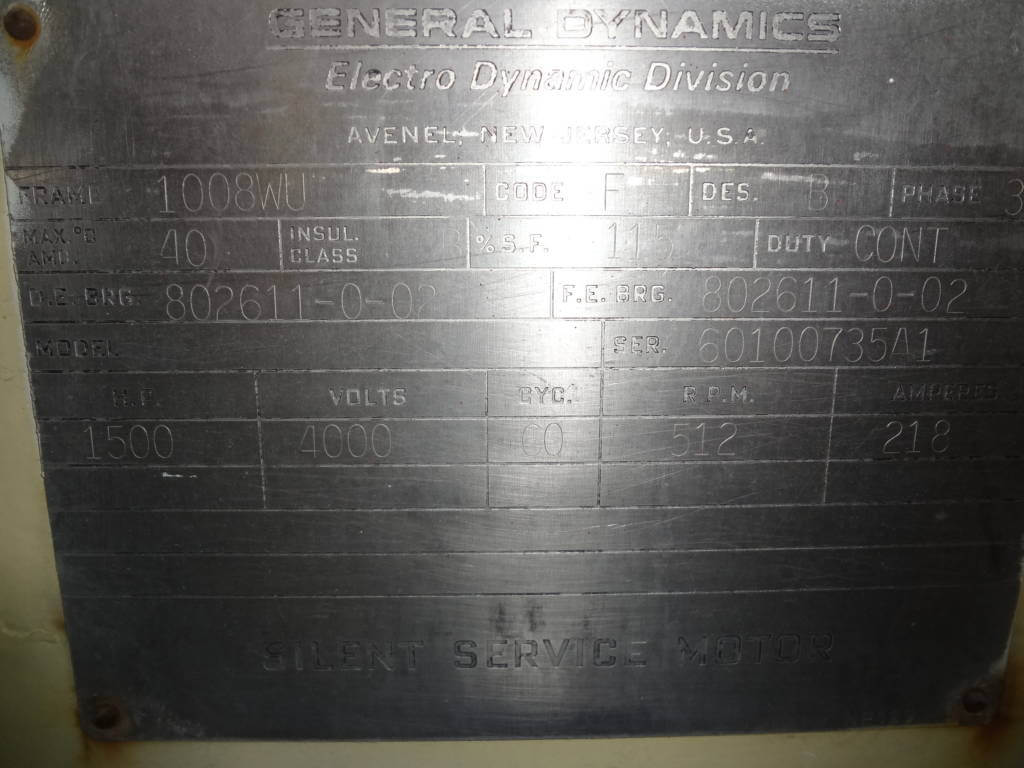 GENERAL DYNAMICS
Electro Dynamic Division
AVENEL, NEW JERSEY, U.S.A.
FRAME 1008WU CODE F DES. B PHASE 3
MAX. °C AMB. 40 INSUL. CLASS B % S.F. 115 DUTY CONT
D.E. BRG. 802611-0-02 F.E. BRG. 802611-0-02
MODEL SER. 60100735A1
H.P. VOLTS CYC. R.P.M. AMPERES
1500 4000 60 512 218
SILENT SERVICE MOTOR